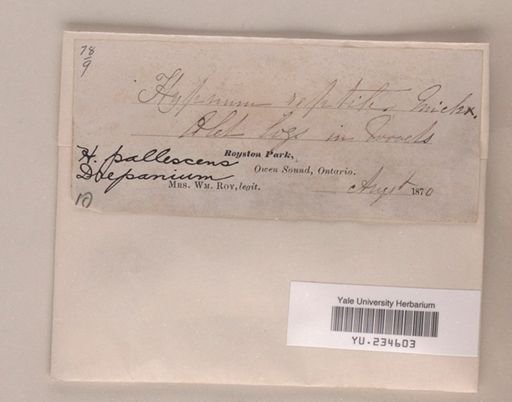 78
9
Hypnum reptile, Michx.
Old logs in woods
Royston Park,
H. pallescens
Owen Sound, Ontario.
Drepanium
Mrs. Wm. Roy, legit.
Augt 1870
10
Yale University Herbarium
YU.234603